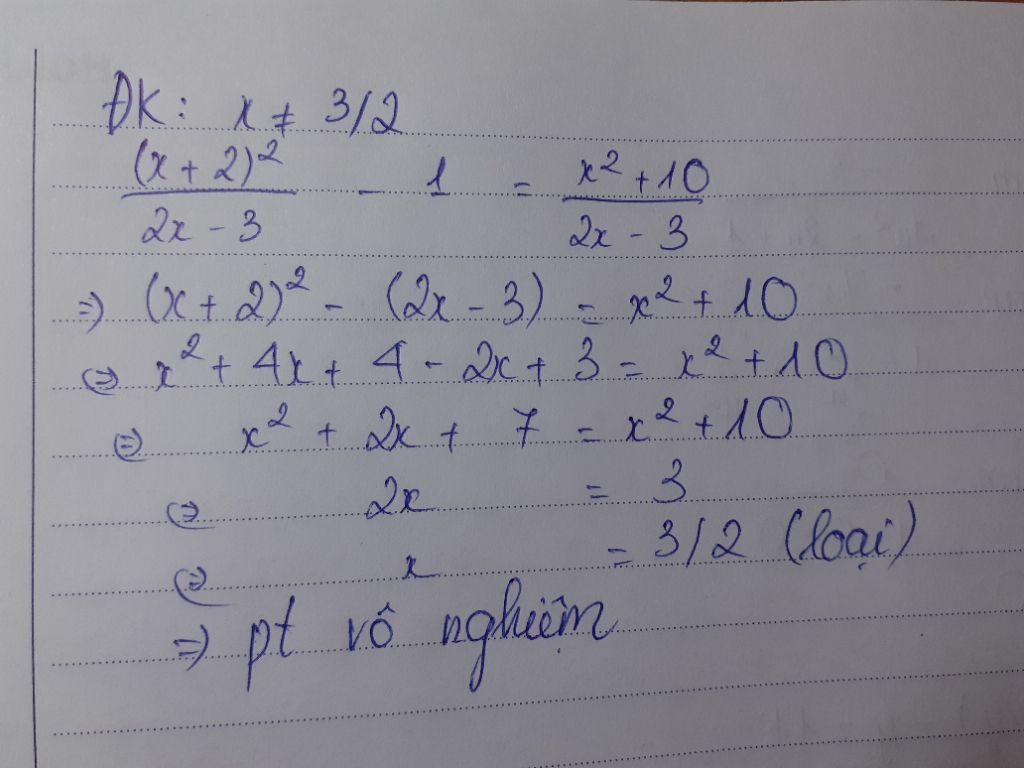 ĐK: x ≠ 3/2
(x+2)²/(2x-3) - 1 = (x²+10)/(2x-3)
⇒ (x+2)² - (2x-3) = x²+10
⇔ x²+4x+4-2x+3 = x²+10
⇔ x²+2x+7 = x²+10
⇔ 2x = 3
⇔ x = 3/2 (loại)
⇒ pt vô nghiệm